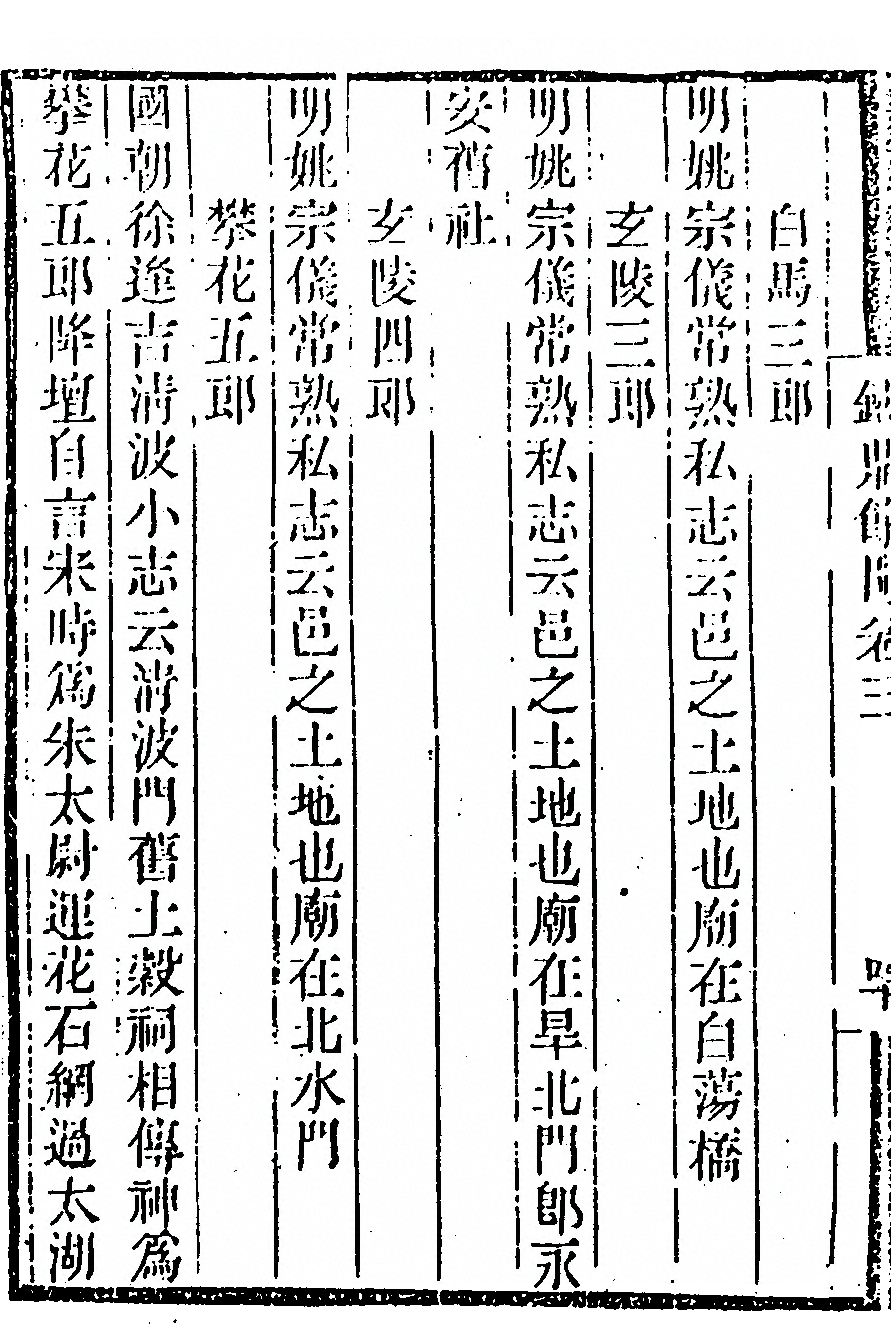 白馬三郎
明姚宗儀常熟私志云邑之土地也廟在白蕩橋
玄陵三郎
明姚宗儀常熟私志云邑之土地也廟在旱北門郎永
安舊社
玄陵四郎
明姚宗儀常熟私志云邑之土地也廟在北水門
攀花五郎
國朝徐逢吉清波小志云清波門舊土穀祠相傳神爲
攀花五郎降壇自言宋時爲朱太尉運花石綱過太湖